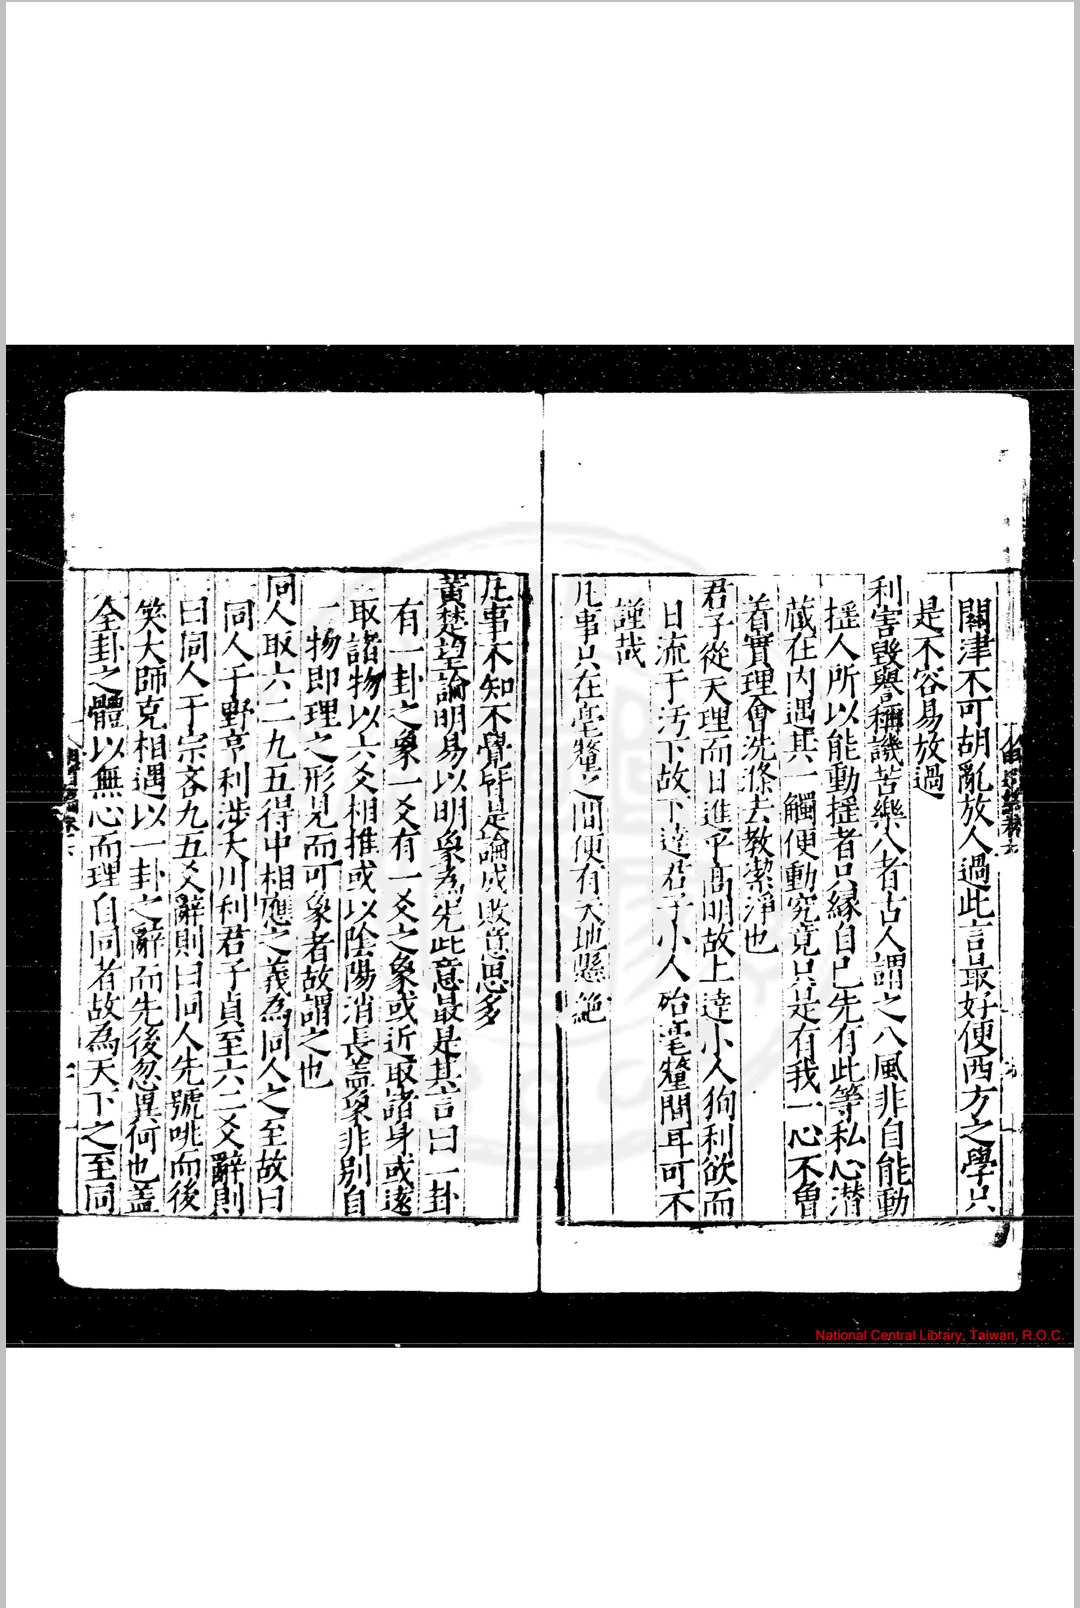 關津不可胡亂放人過此言最好便西方之學只
是不容易放過
利害毀譽稱譏苦樂八者古人謂之八風非自能動
搖人所以能動搖者只緣自己先有此等私心潛
藏在內遇其一觸便動究竟只是有我一心不曾
着實理會洗滌去教潔淨也
君子從天理而日進乎高明故上達小人狥利欲而
日流于污下故下達君子小人殆毫釐間耳可不
謹哉
凡事只在毫釐之間便有天地懸絶
凡事不知不覺皆是論成敗意思多
黃楚望論明易以明象為先此意最是其言曰一卦
有一卦之象一爻有一爻之象或近取諸身或遠
取諸物以六爻相推或以陰陽消長蓋象非別自
一物即理之形見而可象者故謂之也
同人取六二九五得中相應之義為同人之至故曰
同人于野亨利涉大川利君子貞至六二爻辭則
曰同人于宗吝九五爻辭則曰同人先號咷而後
笑大師克相遇以一卦之辭而先後忽異何也蓋
全卦之體以無心而理自同者故為天下之至同
National Central Library, Taiwan, R.O.C.